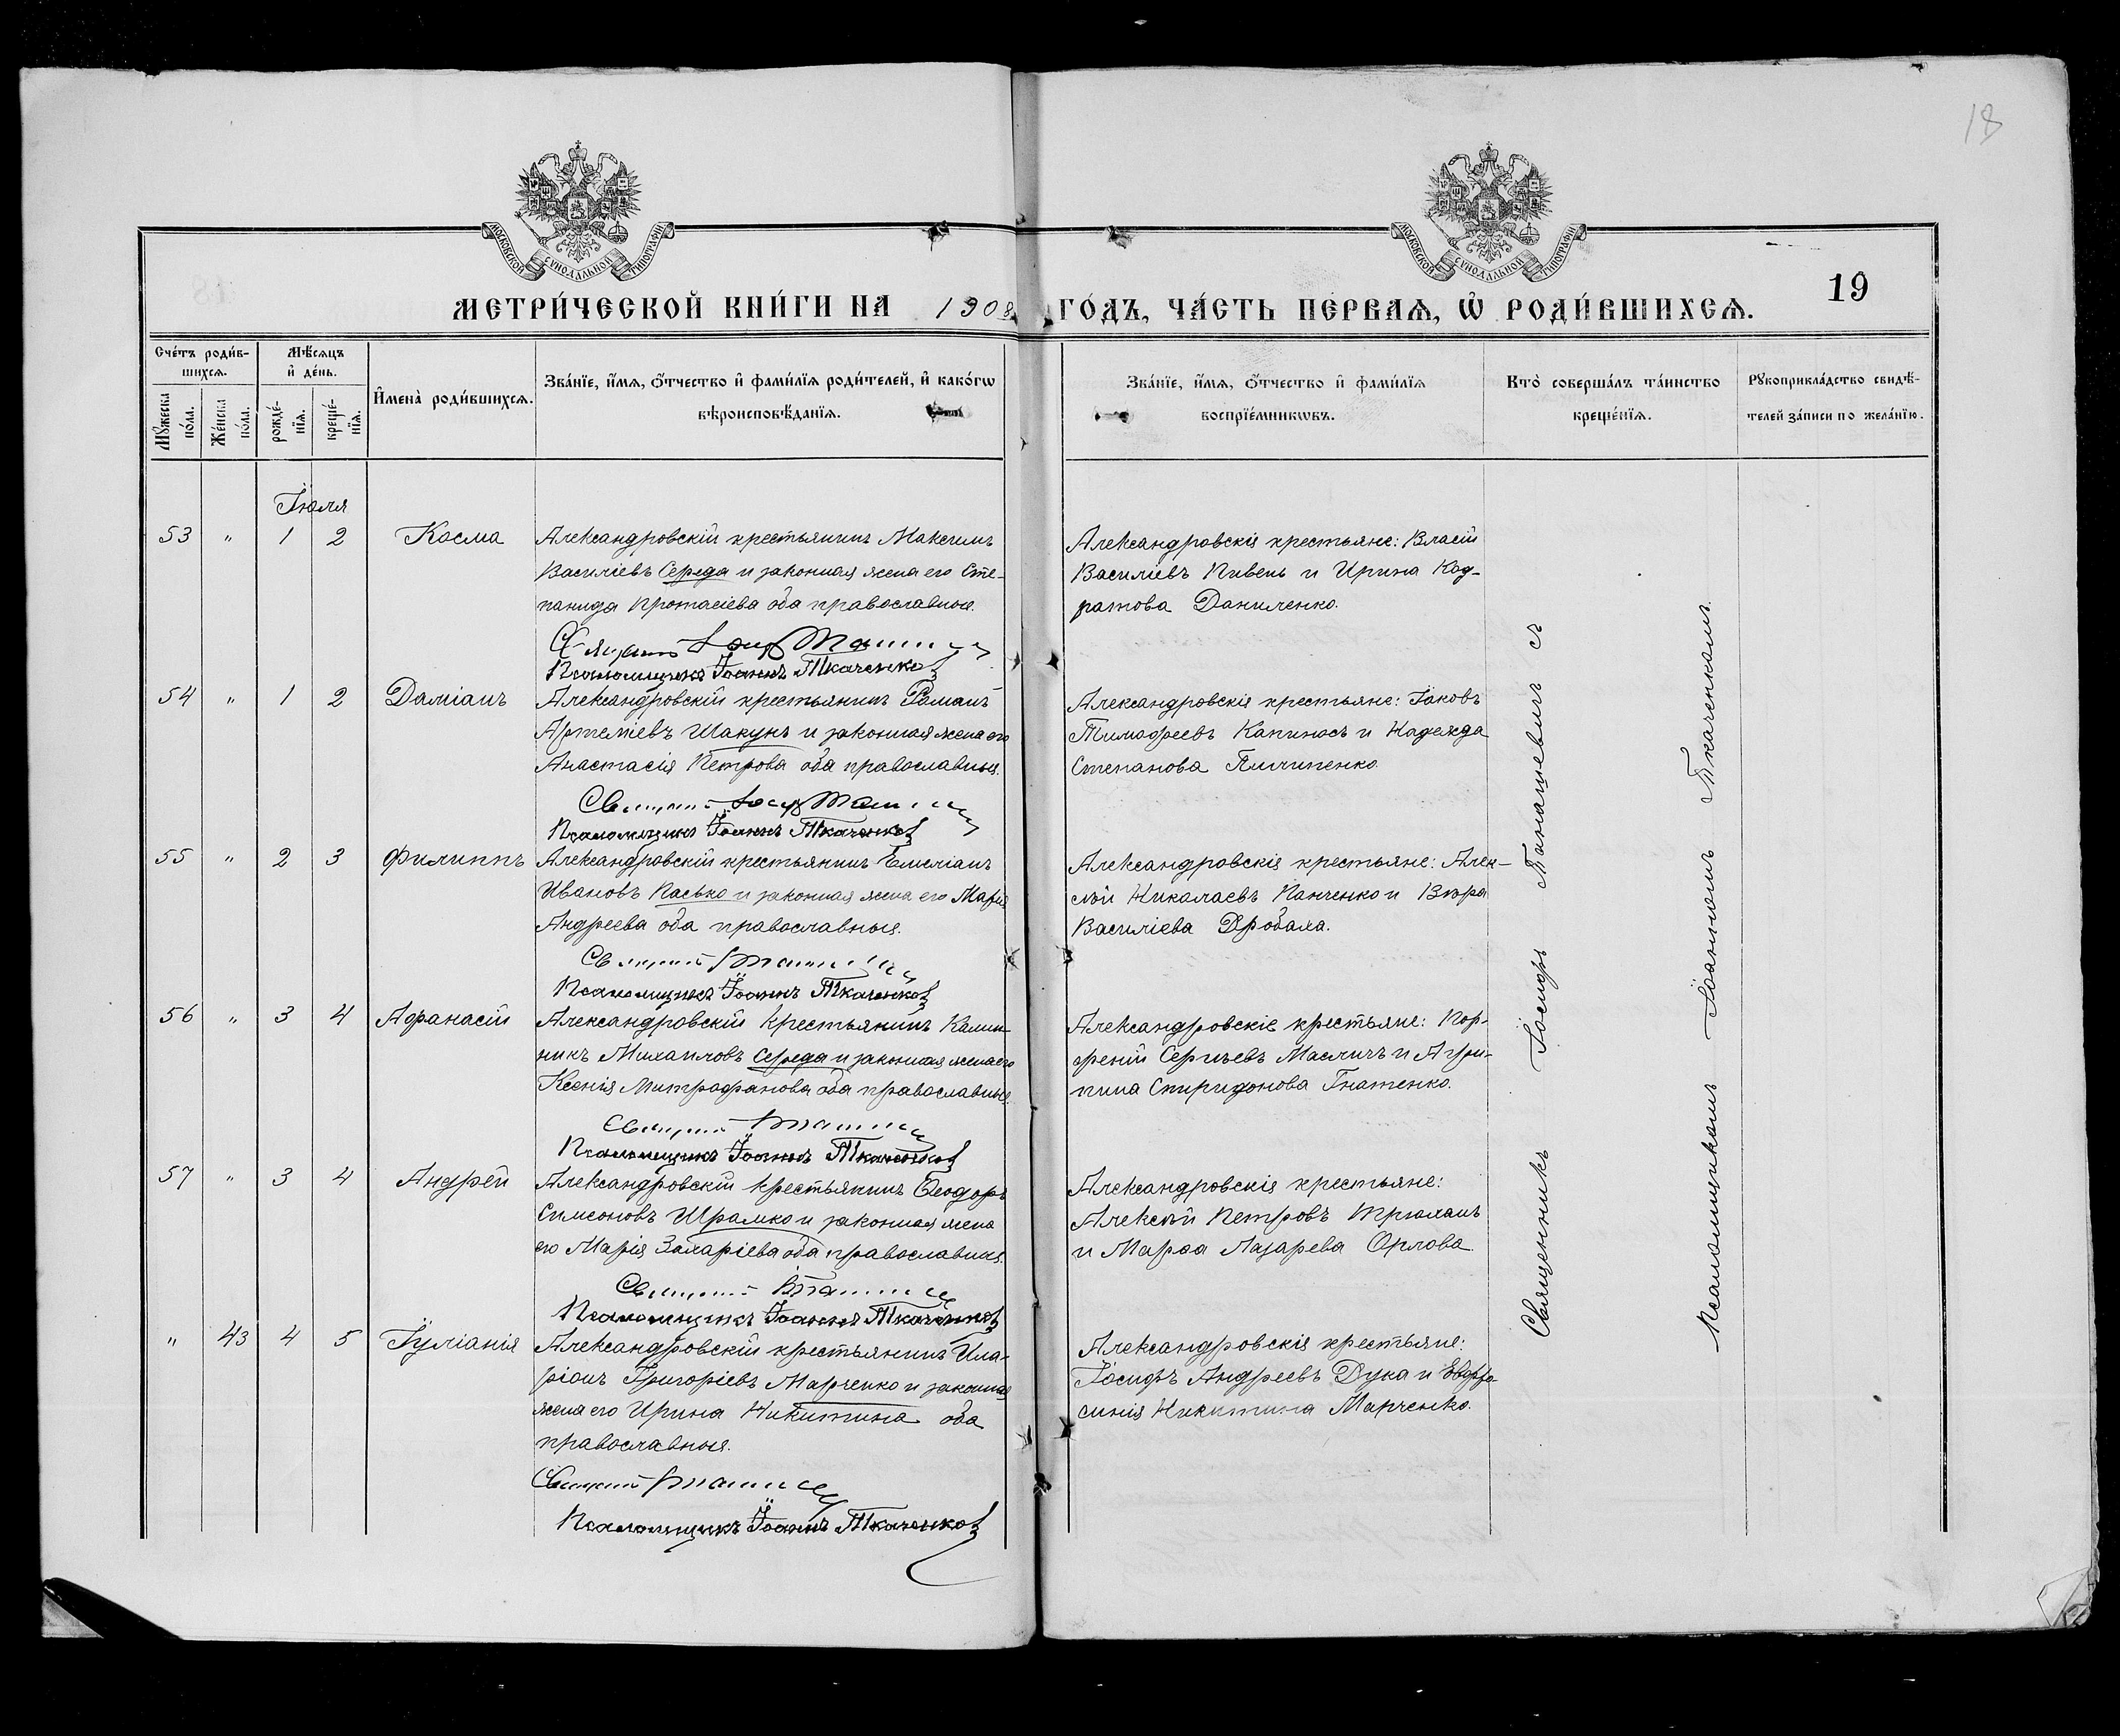 18
МОСКОВСКОЙ СѴНОДАЛЬНОЙ ТИПОГРАФІИ
МОСКОВСКОЙ СѴНОДАЛЬНОЙ ТИПОГРАФІИ
МЕТРИ́ЧЕСКОЙ КНИ́ГИ НА 1908 ГО́ДЪ, ЧА́СТЬ ПЕРВАѦ, Ѡ҆ РОДИ́ВШИХСѦ.
19
Сче́тъ роди́в-
шихсѧ.
Мꙋ́жеска по́ла.
Же́нска по́ла.
Мѣ́сѧцъ
и҆ де́нь.
рожде́-
нїѧ.
креще́-
нїѧ.
И҆мена̀ роди́вшихсѧ.
Зва́нїе, и҆́мѧ, ѻ҆́тчество и҆ фами́лїѧ роди́телей, и҆ како́гѡ
вѣроисповѣ́данїѧ.
Зва́нїе, и҆́мѧ, ѻ҆́тчество и҆ фами́лїѧ
воспрїе́мникѡвъ.
Кто̀ соверша́лъ та́инство
креще́нїѧ.
Рꙋкоприкла́дство свидѣ́-
телей за́писи по жела́нїю.
Іюля
53 " 1 2 Косма
Александровскій крестьянинъ Максимъ
Василіевъ Середа и законная жена его Сте-
панида Протасіева оба православные.
Псаломщикъ Іоаннъ Ткаченко
Александровскіе крестьяне: Власій
Василіевъ Пивень и Ирина Код-
ратова Даниленко.
54 " 1 2 Даміанъ
Александровскій крестьянинъ Романъ
Артеміевъ Шакунъ и законная жена его
Анастасія Петрова оба православные.
Псаломщикъ Іоаннъ Ткаченко
Александровскіе крестьяне: Іаковъ
Тимофеевъ Капиносъ и Надежда
Степанова Пилипенко.
55 " 2 3 Филиппъ
Александровскій крестьянинъ Емиліанъ
Ивановъ Пасько и законная жена его Марія
Андреева оба православные.
Псаломщикъ Іоаннъ Ткаченко
Александровскіе крестьяне: Алек-
сѣй Николаевъ Панченко и Вѣра
Василіева Дробаха.
56 " 3 4 Афанасій
Александровскій крестьянинъ Калин-
никъ Михаиловъ Середа и законная жена его
Ксенія Митрофанова оба православные.
Псаломщикъ Іоаннъ Ткаченко
Александровскіе крестьяне: Пор-
фирій Сергіевъ Масличъ и Агри-
пина Спиридонова Гнатенко.
57 " 3 4 Андрей
Александровскій крестьянинъ Ѳеодоръ
Симеоновъ Шрамко и законная жена
его Марія Захаріева оба православные.
Псаломщикъ Іоаннъ Ткаченко
Александровскіе крестьяне:
Алексѣй Петровъ Трюханъ
и Марѳа Лазарева Орлова.
" 43 4 5 Іуліанія
Александровскій крестьянинъ Ила-
ріонъ Григоріевъ Марченко и законная
жена его Ирина Никитина оба
православные.
Псаломщикъ Іоаннъ Ткаченко
Александровскіе крестьяне:
Іосифъ Андреевъ Дука и Евфро-
синія Никитина Марченко.
Священникъ Іосифъ Танашевичъ съ
Псаломщикомъ Іоанномъ Ткаченкомъ.